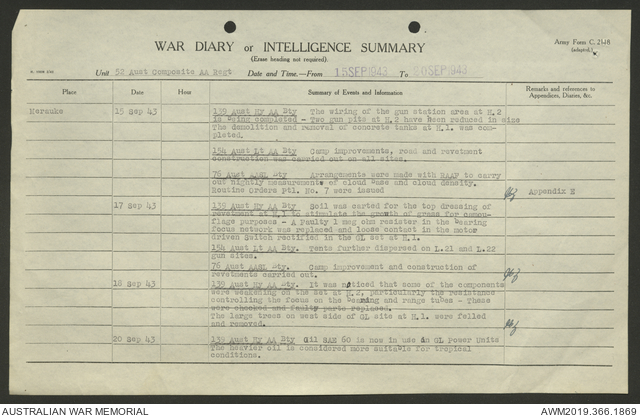 WAR DIARY or INTELLIGENCE SUMMARY
(Erase heading not required).
Army Form C. 2118
(adapted.)
Unit 52 Aust Composite AA Regt Date and Time.—From 15 SEP 1943 To 20 SEP 1943
Place Date Hour Summary of Events and Information Remarks and references to
Appendices, Diaries, &c.
Merauke 15 Sep 43 139 Aust Hy AA Bty The wiring of the gun station area at H.2
is being completed - Two gun pits at H.2 have been reduced in size
The demolition and removal of concrete tanks at H.1. was com-
pleted.
154 Aust Lt AA Bty Camp improvements, road and revetment
construction was carried out on all sites.
76 Aust AASL Bty Arrangements were made with RAAF to carry
out nightly measurements of cloud base and cloud density.
Routine Orders Pt1. No. 7 were issued Appendix E
17 Sep 43 139 Aust Hy AA Bty Soil was carted for the top dressing of
revetment at H.1 to stimulate the growth of grass for camou-
flage purposes - A Faulty 1 meg ohm resister in the bearing
focus network was replaced and loose contact in the motor
driven Switch rectified in the GL set at H.1.
154 Aust Lt AA Bty. Tents further dispersed on L.21 and L.22
gun sites.
76 Aust AASL Bty. Camp improvement and construction of
revetments carried out.
18 Sep 43 139 Aust Hy AA Bty. It was noticed that some of the components
were weakening on the set at H.2, particularly the resistance
controlling the focus on the bearing and range tubes - These
were checked and faulty parts replaced.
The large trees on west side of GL site at H.1. were felled
and removed.
20 Sep 43 139 Aust Hy AA Bty Oil SAE 60 is now in use in GL Power Units
The heavier oil is considered more suitable for tropical
conditions.
AUSTRALIAN WAR MEMORIAL AWM2019.366.1869